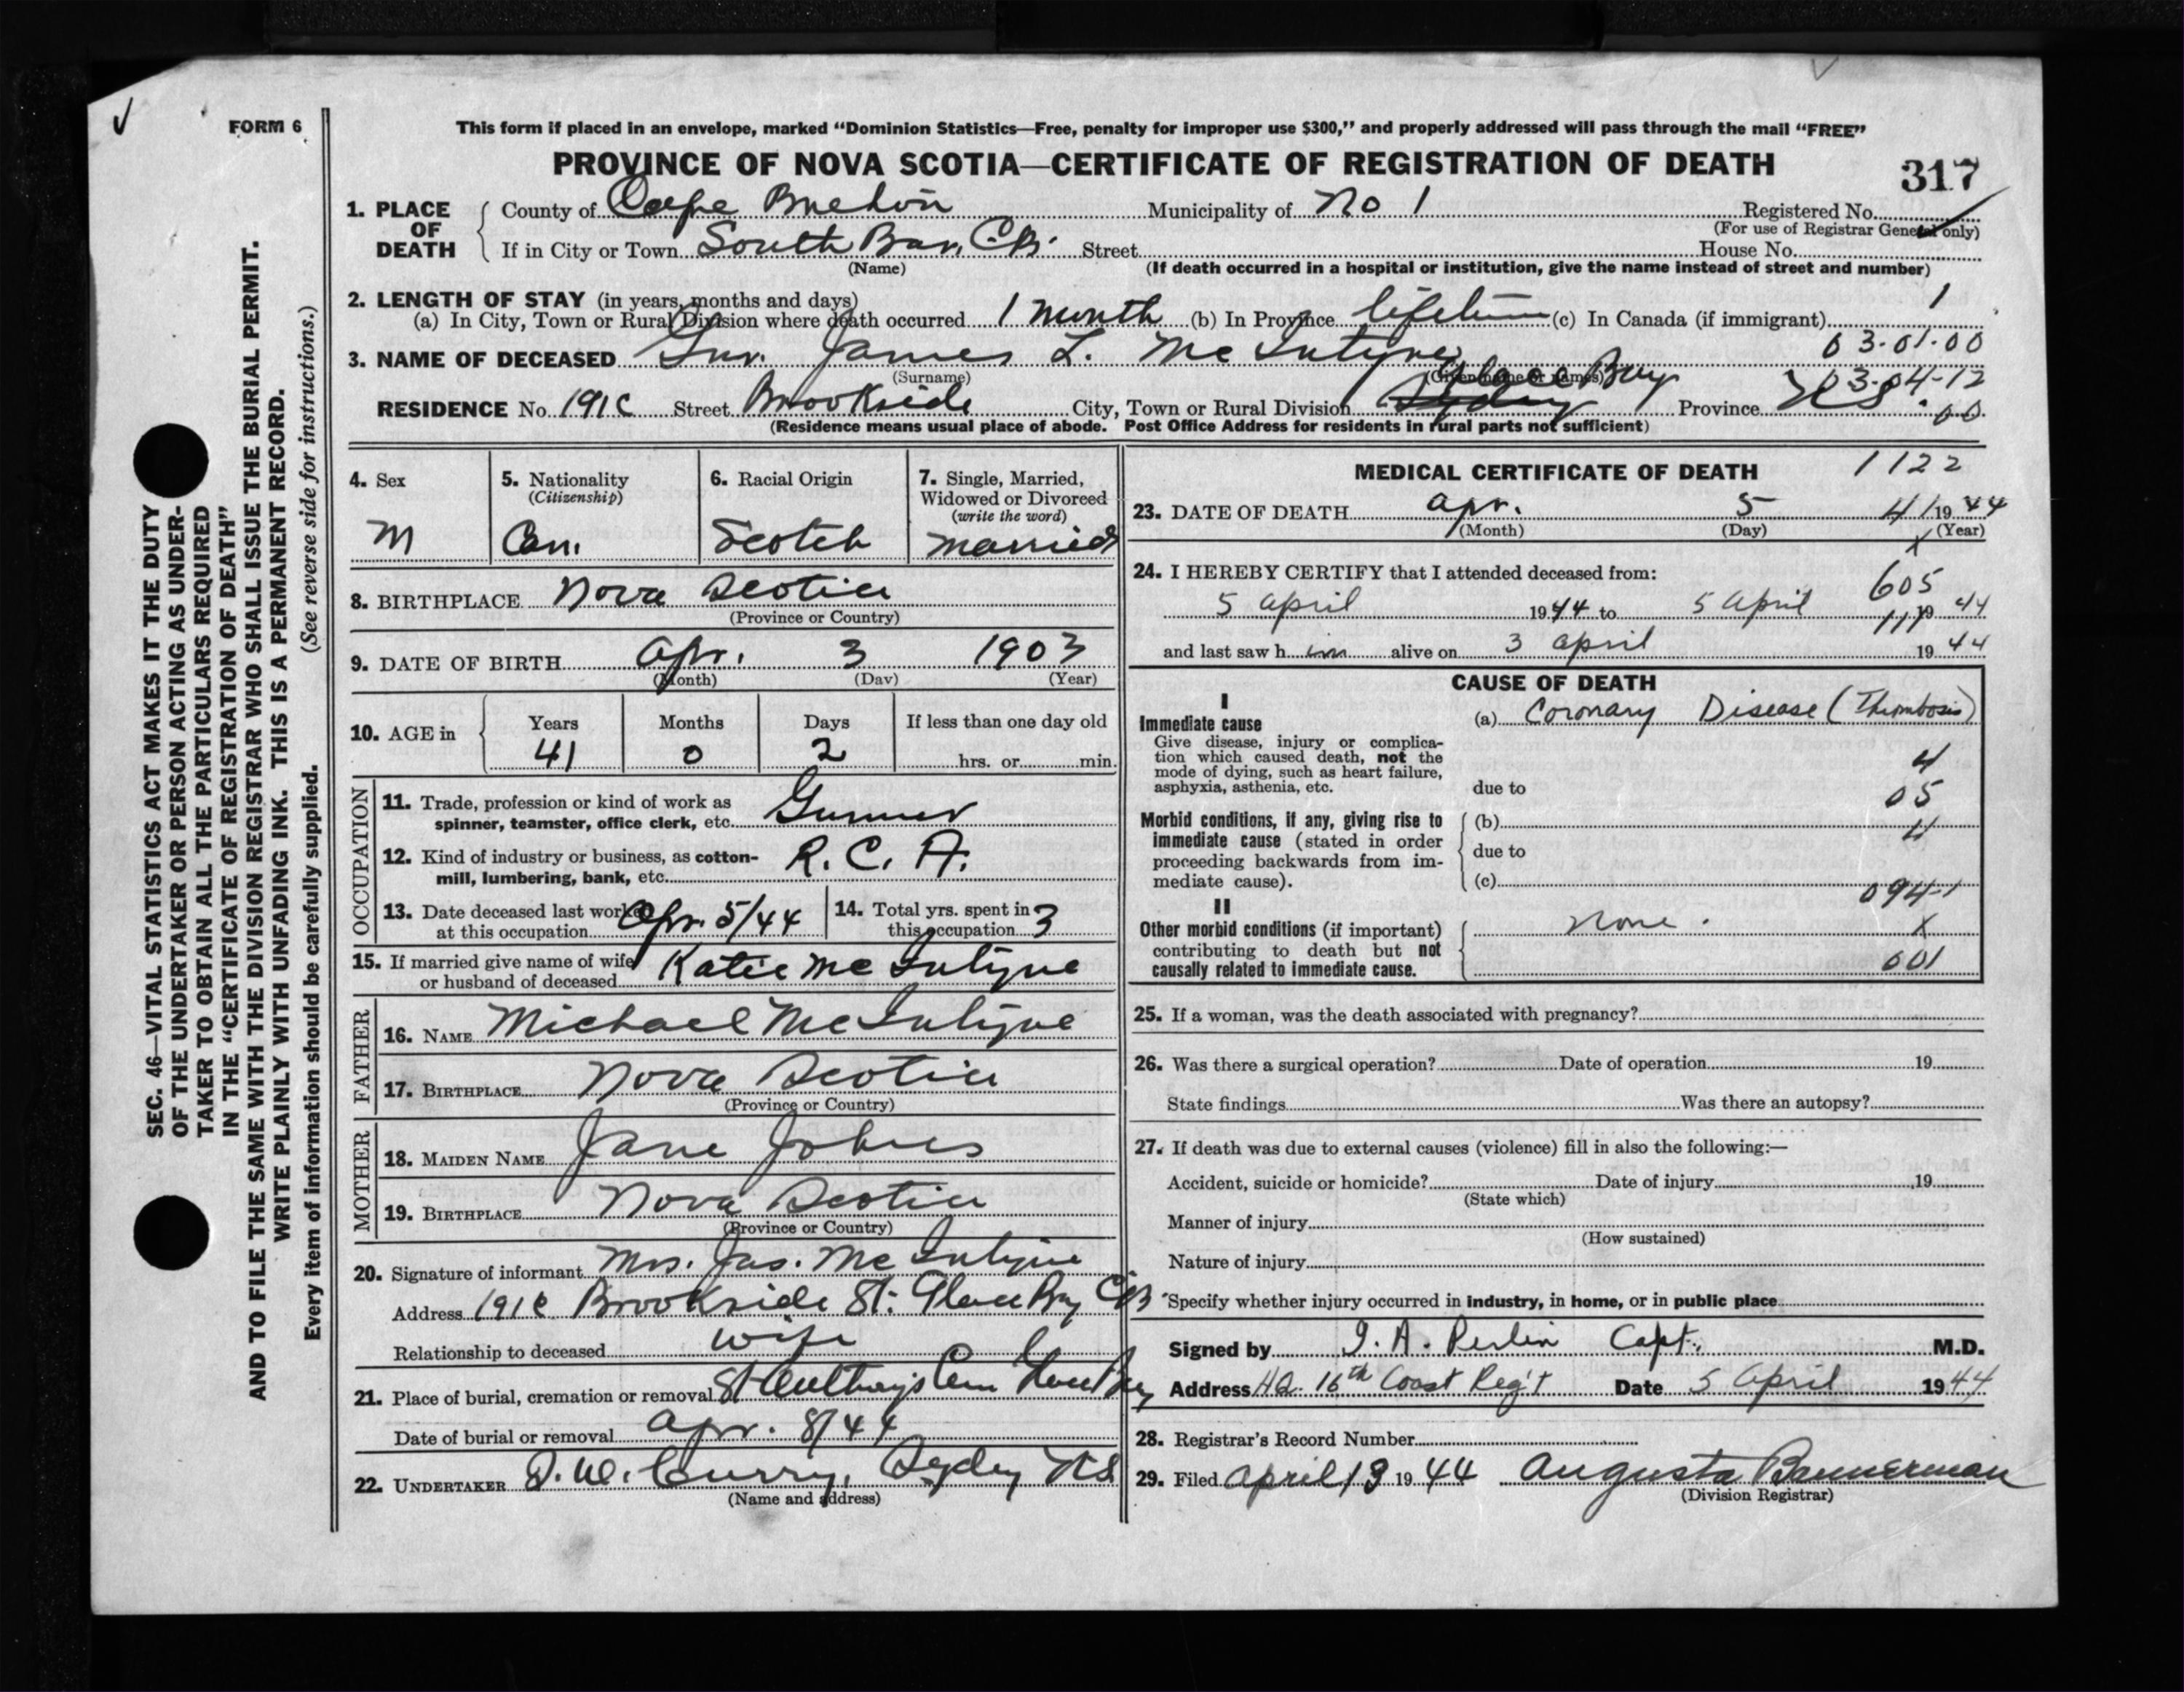 FORM 6
This form if placed in an envelope, marked "Dominion Statistics—Free, penalty for improper use $300," and properly addressed will pass through the mail "FREE"
PROVINCE OF NOVA SCOTIA—CERTIFICATE OF REGISTRATION OF DEATH
317
1. PLACE OF DEATH
County of Cape Breton Municipality of No 1 Registered No.
(For use of Registrar General only)
If in City or Town South Bar, C.B. Street House No.
(Name) (If death occurred in a hospital or institution, give the name instead of street and number)
2. LENGTH OF STAY (in years, months and days)
(a) In City, Town or Rural Division where death occurred 1 month (b) In Province lifetime (c) In Canada (if immigrant) 1
03-01-00
3. NAME OF DECEASED Gnr. James L. McIntyre
(Surname) (Given name or names)
03-04-12
00
RESIDENCE No. 191C Street Brookside City, Town or Rural Division Sydney Glace Bay Province NS
(Residence means usual place of abode. Post Office Address for residents in rural parts not sufficient)
4. Sex M
5. Nationality (Citizenship) Can.
6. Racial Origin Scotch
7. Single, Married, Widowed or Divorced (write the word) Married
8. BIRTHPLACE Nova Scotia
(Province or Country)
9. DATE OF BIRTH Apr. 3 1903
(Month) (Day) (Year)
10. AGE in Years 41 Months 0 Days 2 If less than one day old hrs. or min.
OCCUPATION
11. Trade, profession or kind of work as spinner, teamster, office clerk, etc. Gunner
12. Kind of industry or business, as cotton-mill, lumbering, bank, etc. R. C. A.
13. Date deceased last worked at this occupation Apr. 5/44
14. Total yrs. spent in this occupation 3
15. If married give name of wife or husband of deceased Katie McIntyre
FATHER
16. NAME Michael McIntyre
17. BIRTHPLACE Nova Scotia
(Province or Country)
MOTHER
18. MAIDEN NAME Jane Johns
19. BIRTHPLACE Nova Scotia
(Province or Country)
20. Signature of informant Mrs. Jas. McIntyre
Address 191C Brookside St. Glace Bay CB
Relationship to deceased wife
21. Place of burial, cremation or removal St Anthony's Cem Glace Bay
Date of burial or removal Apr. 8/44
22. UNDERTAKER D. W. Curry, Sydney NS
(Name and address)
MEDICAL CERTIFICATE OF DEATH
1122
23. DATE OF DEATH Apr. 5 41 1944
(Month) (Day) (Year)
X
24. I HEREBY CERTIFY that I attended deceased from:
605
5 April 1944 to 5 April 1944
111
and last saw h im alive on 3 April 1944
CAUSE OF DEATH
I
Immediate cause
Give disease, injury or complication which caused death, not the mode of dying, such as heart failure, asphyxia, asthenia, etc.
(a) Coronary Disease (Thrombosis)
4
due to
05
Morbid conditions, if any, giving rise to immediate cause (stated in order proceeding backwards from immediate cause).
(b)
4
due to
(c)
094-1
II
Other morbid conditions (if important) contributing to death but not causally related to immediate cause.
none.
X
001
25. If a woman, was the death associated with pregnancy?
26. Was there a surgical operation? Date of operation 19
State findings Was there an autopsy?
27. If death was due to external causes (violence) fill in also the following:—
Accident, suicide or homicide? Date of injury 19
(State which)
Manner of injury
(How sustained)
Nature of injury
Specify whether injury occurred in industry, in home, or in public place
Signed by I. A. Perlin Capt. M.D.
Address HQ 16th Coast Reg't Date 5 April 1944
28. Registrar's Record Number
29. Filed April 13 1944 Augusta Bannerman
(Division Registrar)
SEC. 46—VITAL STATISTICS ACT MAKES IT THE DUTY
OF THE UNDERTAKER OR PERSON ACTING AS UNDER-
TAKER TO OBTAIN ALL THE PARTICULARS REQUIRED
IN THE "CERTIFICATE OF REGISTRATION OF DEATH"
AND TO FILE THE SAME WITH THE DIVISION REGISTRAR WHO SHALL ISSUE THE BURIAL PERMIT.
WRITE PLAINLY WITH UNFADING INK. THIS IS A PERMANENT RECORD.
Every item of information should be carefully supplied. (See reverse side for instructions.)